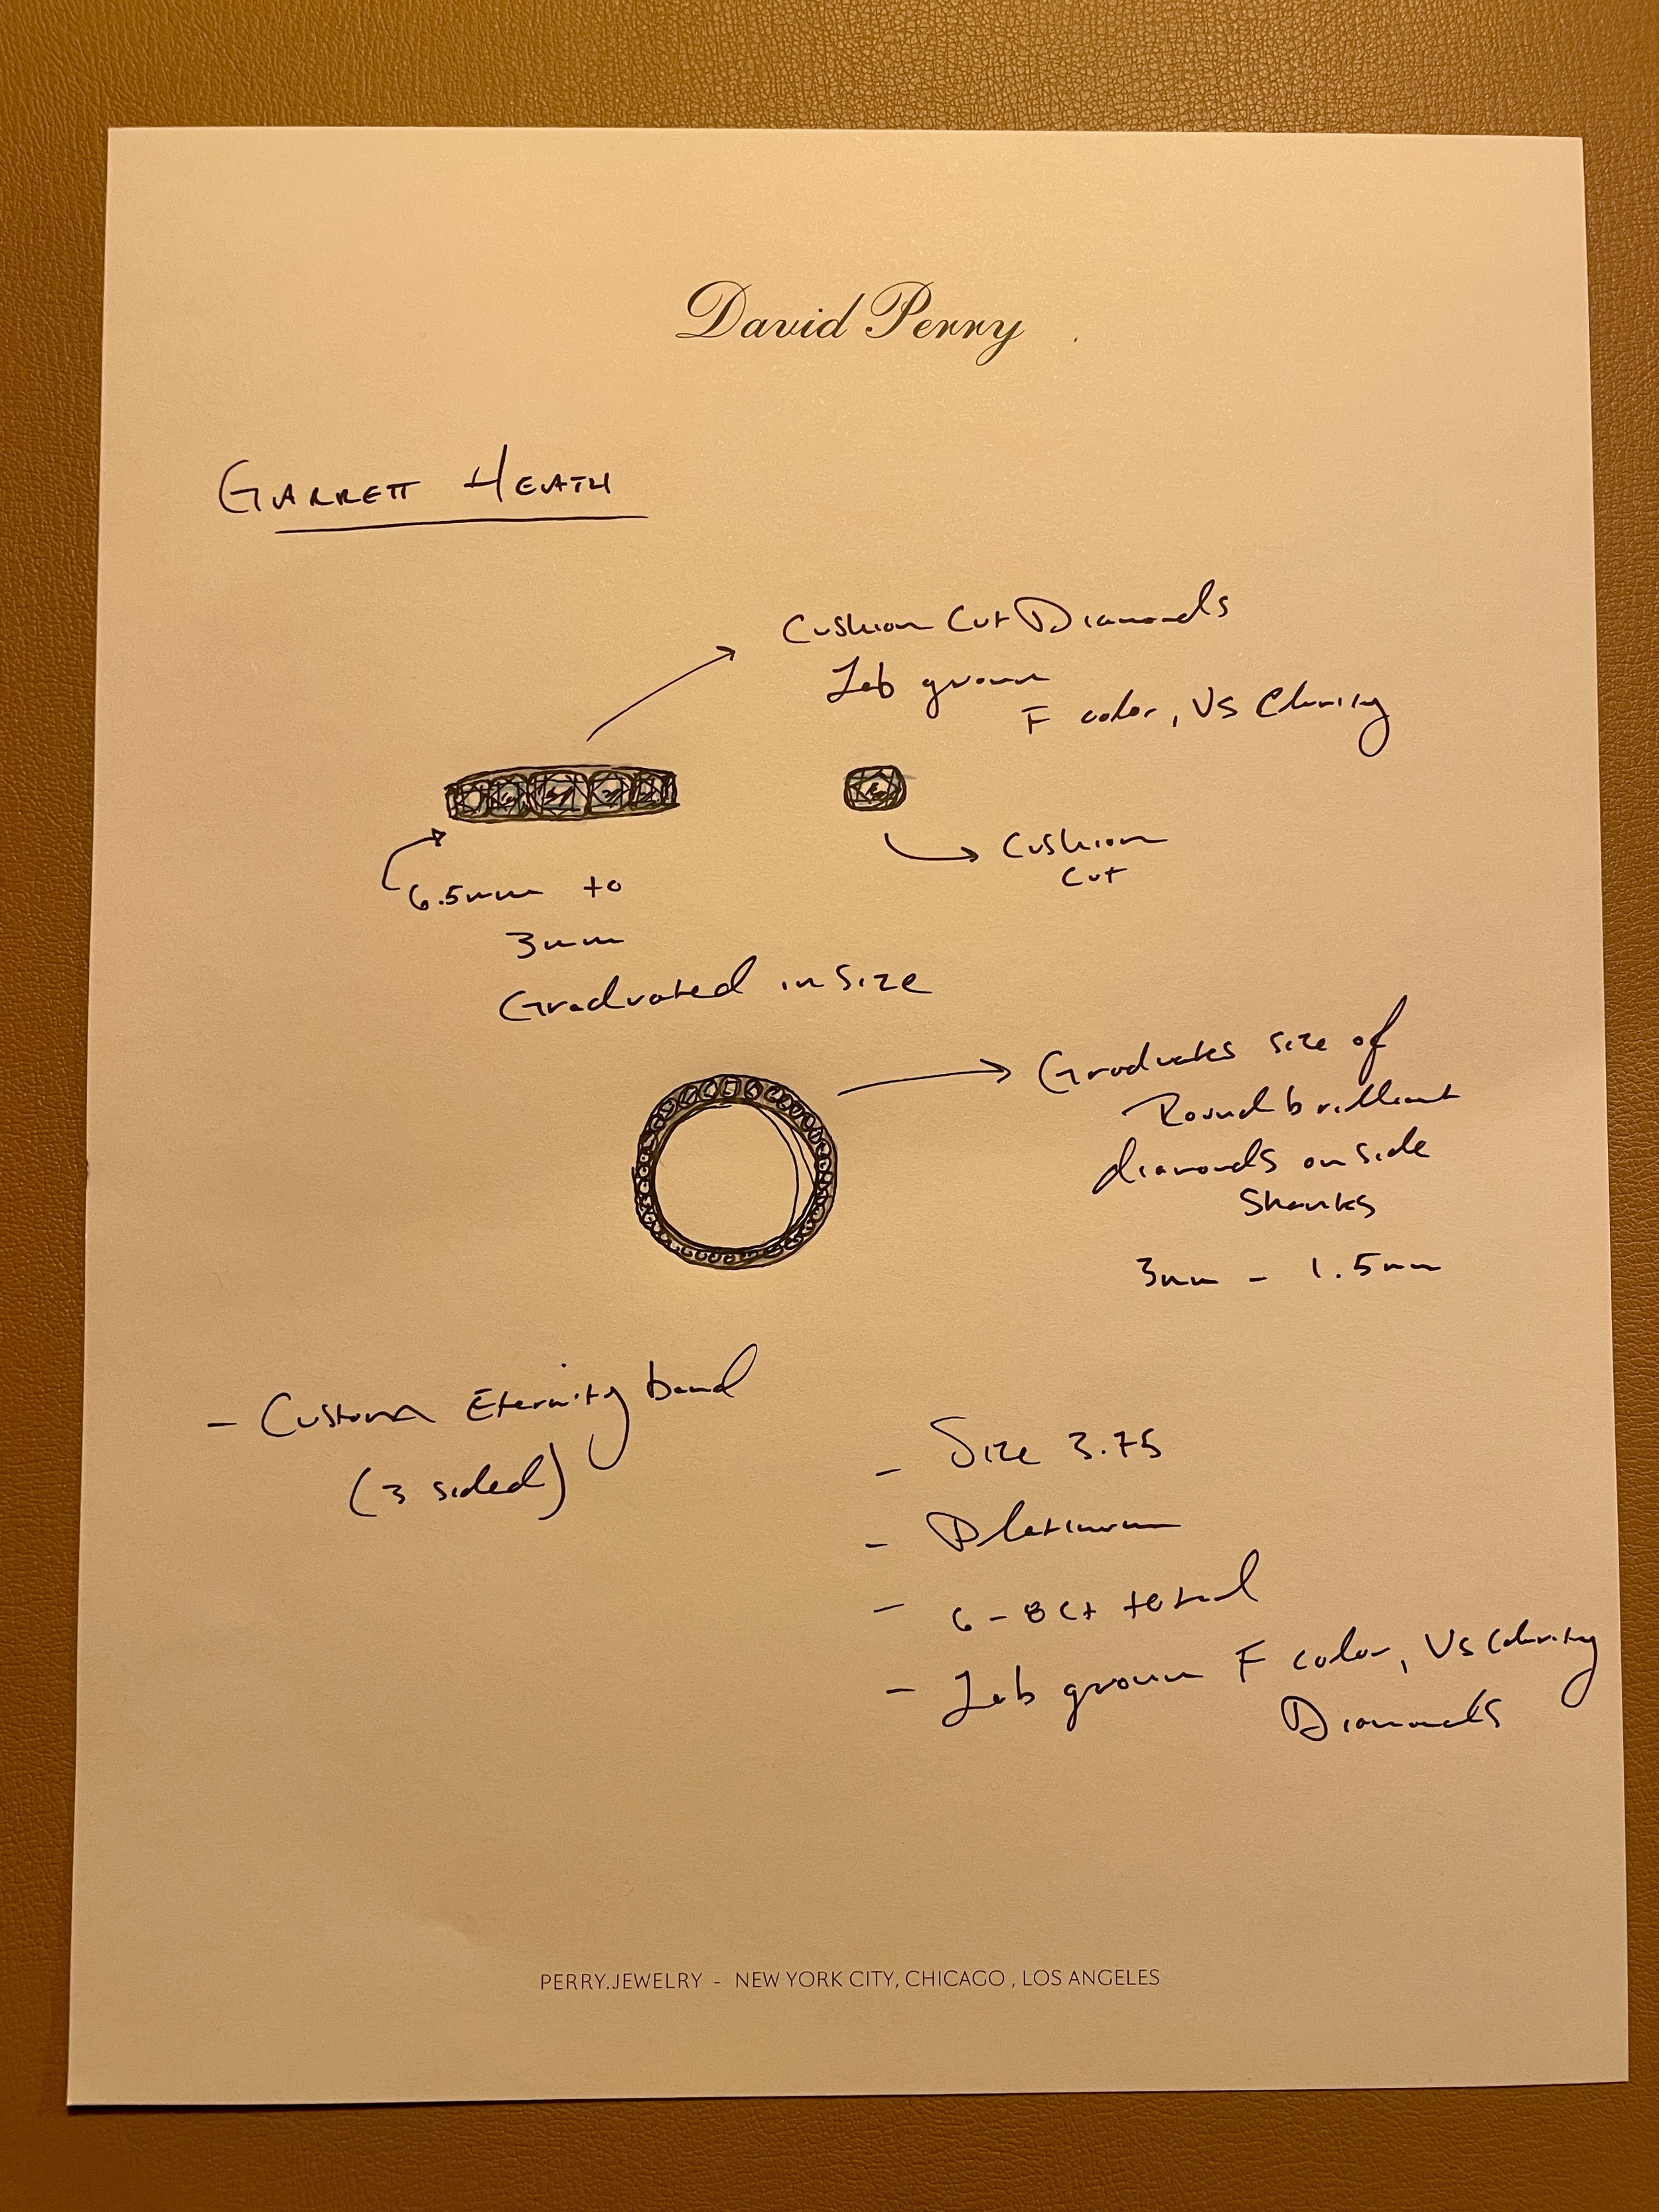 David Perry
GARRETT HEATH
Cushion Cut Diamonds
Lab grown
F color, VS Clarity
Cushion
Cut
6.5mm to
3mm
Graduated in Size
Graduates size of
Round brilliant
diamonds on side
Shanks
3mm - 1.5mm
- Custom Eternity band
(3 sided)
- Size 3.75
- Platinum
- 6-8 ct total
- Lab grown F color, VS Clarity
Diamonds
PERRY.JEWELRY - NEW YORK CITY, CHICAGO , LOS ANGELES